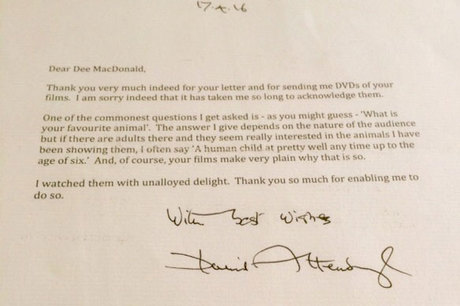 17.4.16
Dear Dee MacDonald,
Thank you very much indeed for your letter and for sending me DVDs of your
films.  I am sorry indeed that it has taken me so long to acknowledge them.
One of the commonest questions I get asked is - as you might guess - 'What is
your favourite animal'.  The answer I give depends on the nature of the audience
but if there are adults there and they seem really interested in the animals I have
been showing them, I often say 'A human child at pretty well any time up to the
age of six.'  And, of course, your films make very plain why that is so.
I watched them with unalloyed delight.  Thank you so much for enabling me to
do so.
With best wishes
David Attenborough